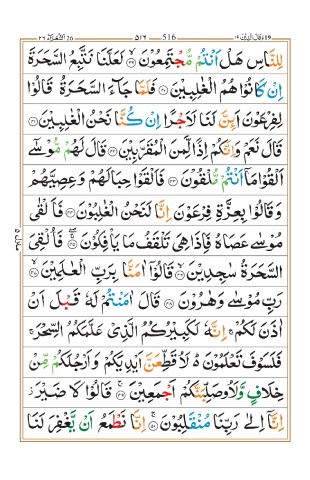 وقال الذين ١٩ 516 ٥١٦ الشعرآء 26 ٢٦
لِلنَّاسِ هَلْ اَنْتُمْ مُّجْتَمِعُوْنَ ۙ﴿۳۹﴾ لَعَلَّنَا نَتَّبِعُ السَّحَرَةَ
اِنْ كَانُوْا هُمُ الْغٰلِبِيْنَ ﴿۴۰﴾ فَلَمَّا جَآءَ السَّحَرَةُ قَالُوْا
لِفِرْعَوْنَ اَئِنَّ لَنَا لَاَجْرًا اِنْ كُنَّا نَحْنُ الْغٰلِبِيْنَ ﴿۴۱﴾
قَالَ نَعَمْ وَاِنَّكُمْ اِذًا لَّمِنَ الْمُقَرَّبِيْنَ ﴿۴۲﴾ قَالَ لَهُمْ مُّوْسٰٓى
اَلْقُوْا مَاۤ اَنْتُمْ مُّلْقُوْنَ ﴿۴۳﴾ فَاَلْقَوْا حِبَالَهُمْ وَعِصِيَّهُمْ
وَقَالُوْا بِعِزَّةِ فِرْعَوْنَ اِنَّا لَنَحْنُ الْغٰلِبُوْنَ ﴿۴۴﴾ فَاَلْقٰى
مُوْسٰى عَصَاهُ فَاِذَا هِىَ تَلْقَفُ مَا يَاْفِكُوْنَ ۖۚ﴿۴۵﴾ فَاُلْقِىَ
السَّحَرَةُ سٰجِدِيْنَ ۙ﴿۴۶﴾ قَالُوْۤا اٰمَنَّا بِرَبِّ الْعٰلَمِيْنَ ۙ﴿۴۷﴾
رَبِّ مُوْسٰى وَهٰرُوْنَ ﴿۴۸﴾ قَالَ اٰمَنْتُمْ لَهٗ قَبْلَ اَنْ
اٰذَنَ لَكُمْ ۚ اِنَّهٗ لَكَبِيْرُكُمُ الَّذِىْ عَلَّمَكُمُ السِّحْرَ ۚ
فَلَسَوْفَ تَعْلَمُوْنَ ۬ؕ لَاُقَطِّعَنَّ اَيْدِيَكُمْ وَاَرْجُلَكُمْ مِّنْ
خِلَافٍ وَّلَاُوصَلِّبَنَّكُمْ اَجْمَعِيْنَ ۚ﴿۴۹﴾ قَالُوْا لَا ضَيْرَ ز
اِنَّاۤ اِلٰى رَبِّنَا مُنْقَلِبُوْنَ ۚ﴿۵۰﴾ اِنَّا نَطْمَعُ اَنْ يَّغْفِرَ لَنَا
منزل ٥